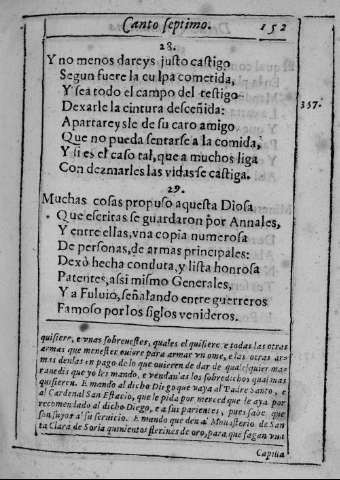 Canto septimo. 152
28.
Y no menos dareys justo castigo
Segun fuere la culpa cometida,
Y sea todo el campo del testigo
Dexarle la cintura desceñida:
Apartareysle de su caro amigo
Que no pueda sentarse a la comida,
Y si es el caso tal, que a muchos liga
Con dezmarles las vidas se castiga.
357.
29.
Muchas cosas propuso aquesta Diosa
Que escritas se guardaron por Annales,
Y entre ellas, vna copia numerosa
De personas, de armas principales:
Dexò hecha conduta, y lista honrosa
Patentes, assi mismo Generales,
Y a Fuluio, señalando entre guerreros
Famoso por los siglos venideros.
quisiere, e vnas sobreuestes, quales el quisiere e todas las otras
armas que menester ouiere para armar vn ome, e las otras ar-
mas denlas en pago de lo que ouieren de dar de qualesquier ma-
rauedis que yo les mando, e vendan las los sobredichos quai mas
quisieren. E mando al dicho Diego que vaya al Padre Santo, e
al Cardenal San Estacio, que le pida por merced que le aya por
recomendado al dicho Diego, e a sus parientes, pues sabe que
son suyos a su seruicio. E mando que den al Monasterio de San
ta Clara de Soria quinientos florines de oro, para que fagan vna
Capilla